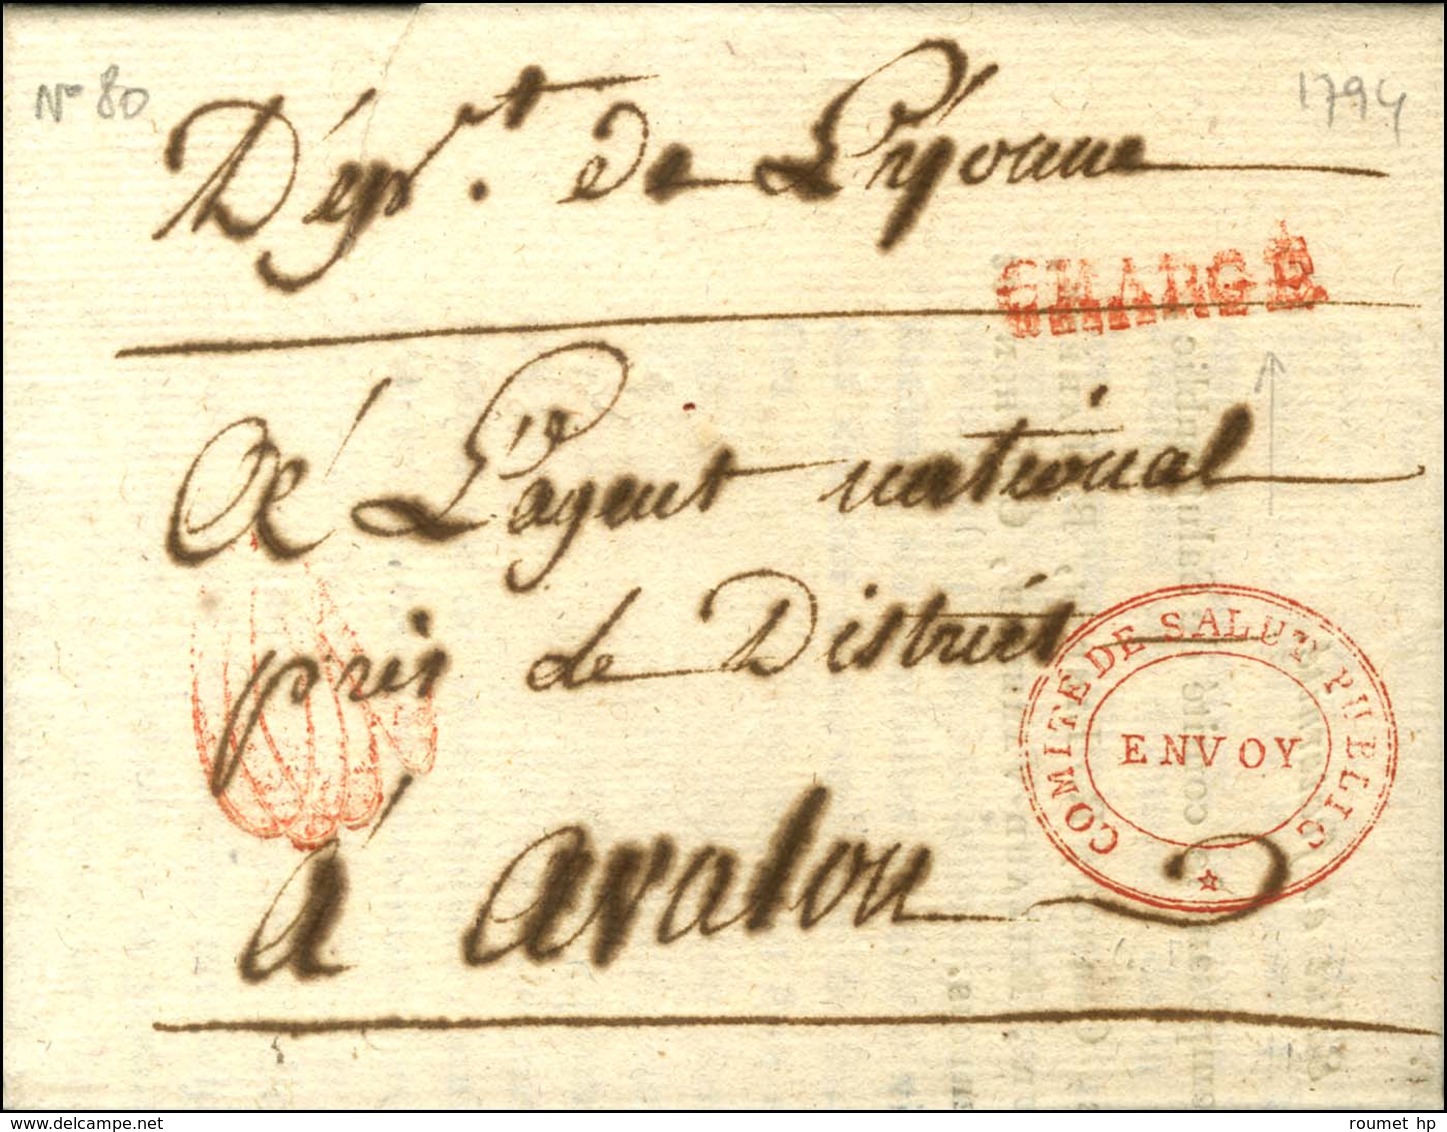 N° 80
1794
Dépt. de L'yonne
CHARGÉ
A L'agent national
près le District
COMITE DE SALUT PUBLIC
ENVOY
à avalon
roumet hp